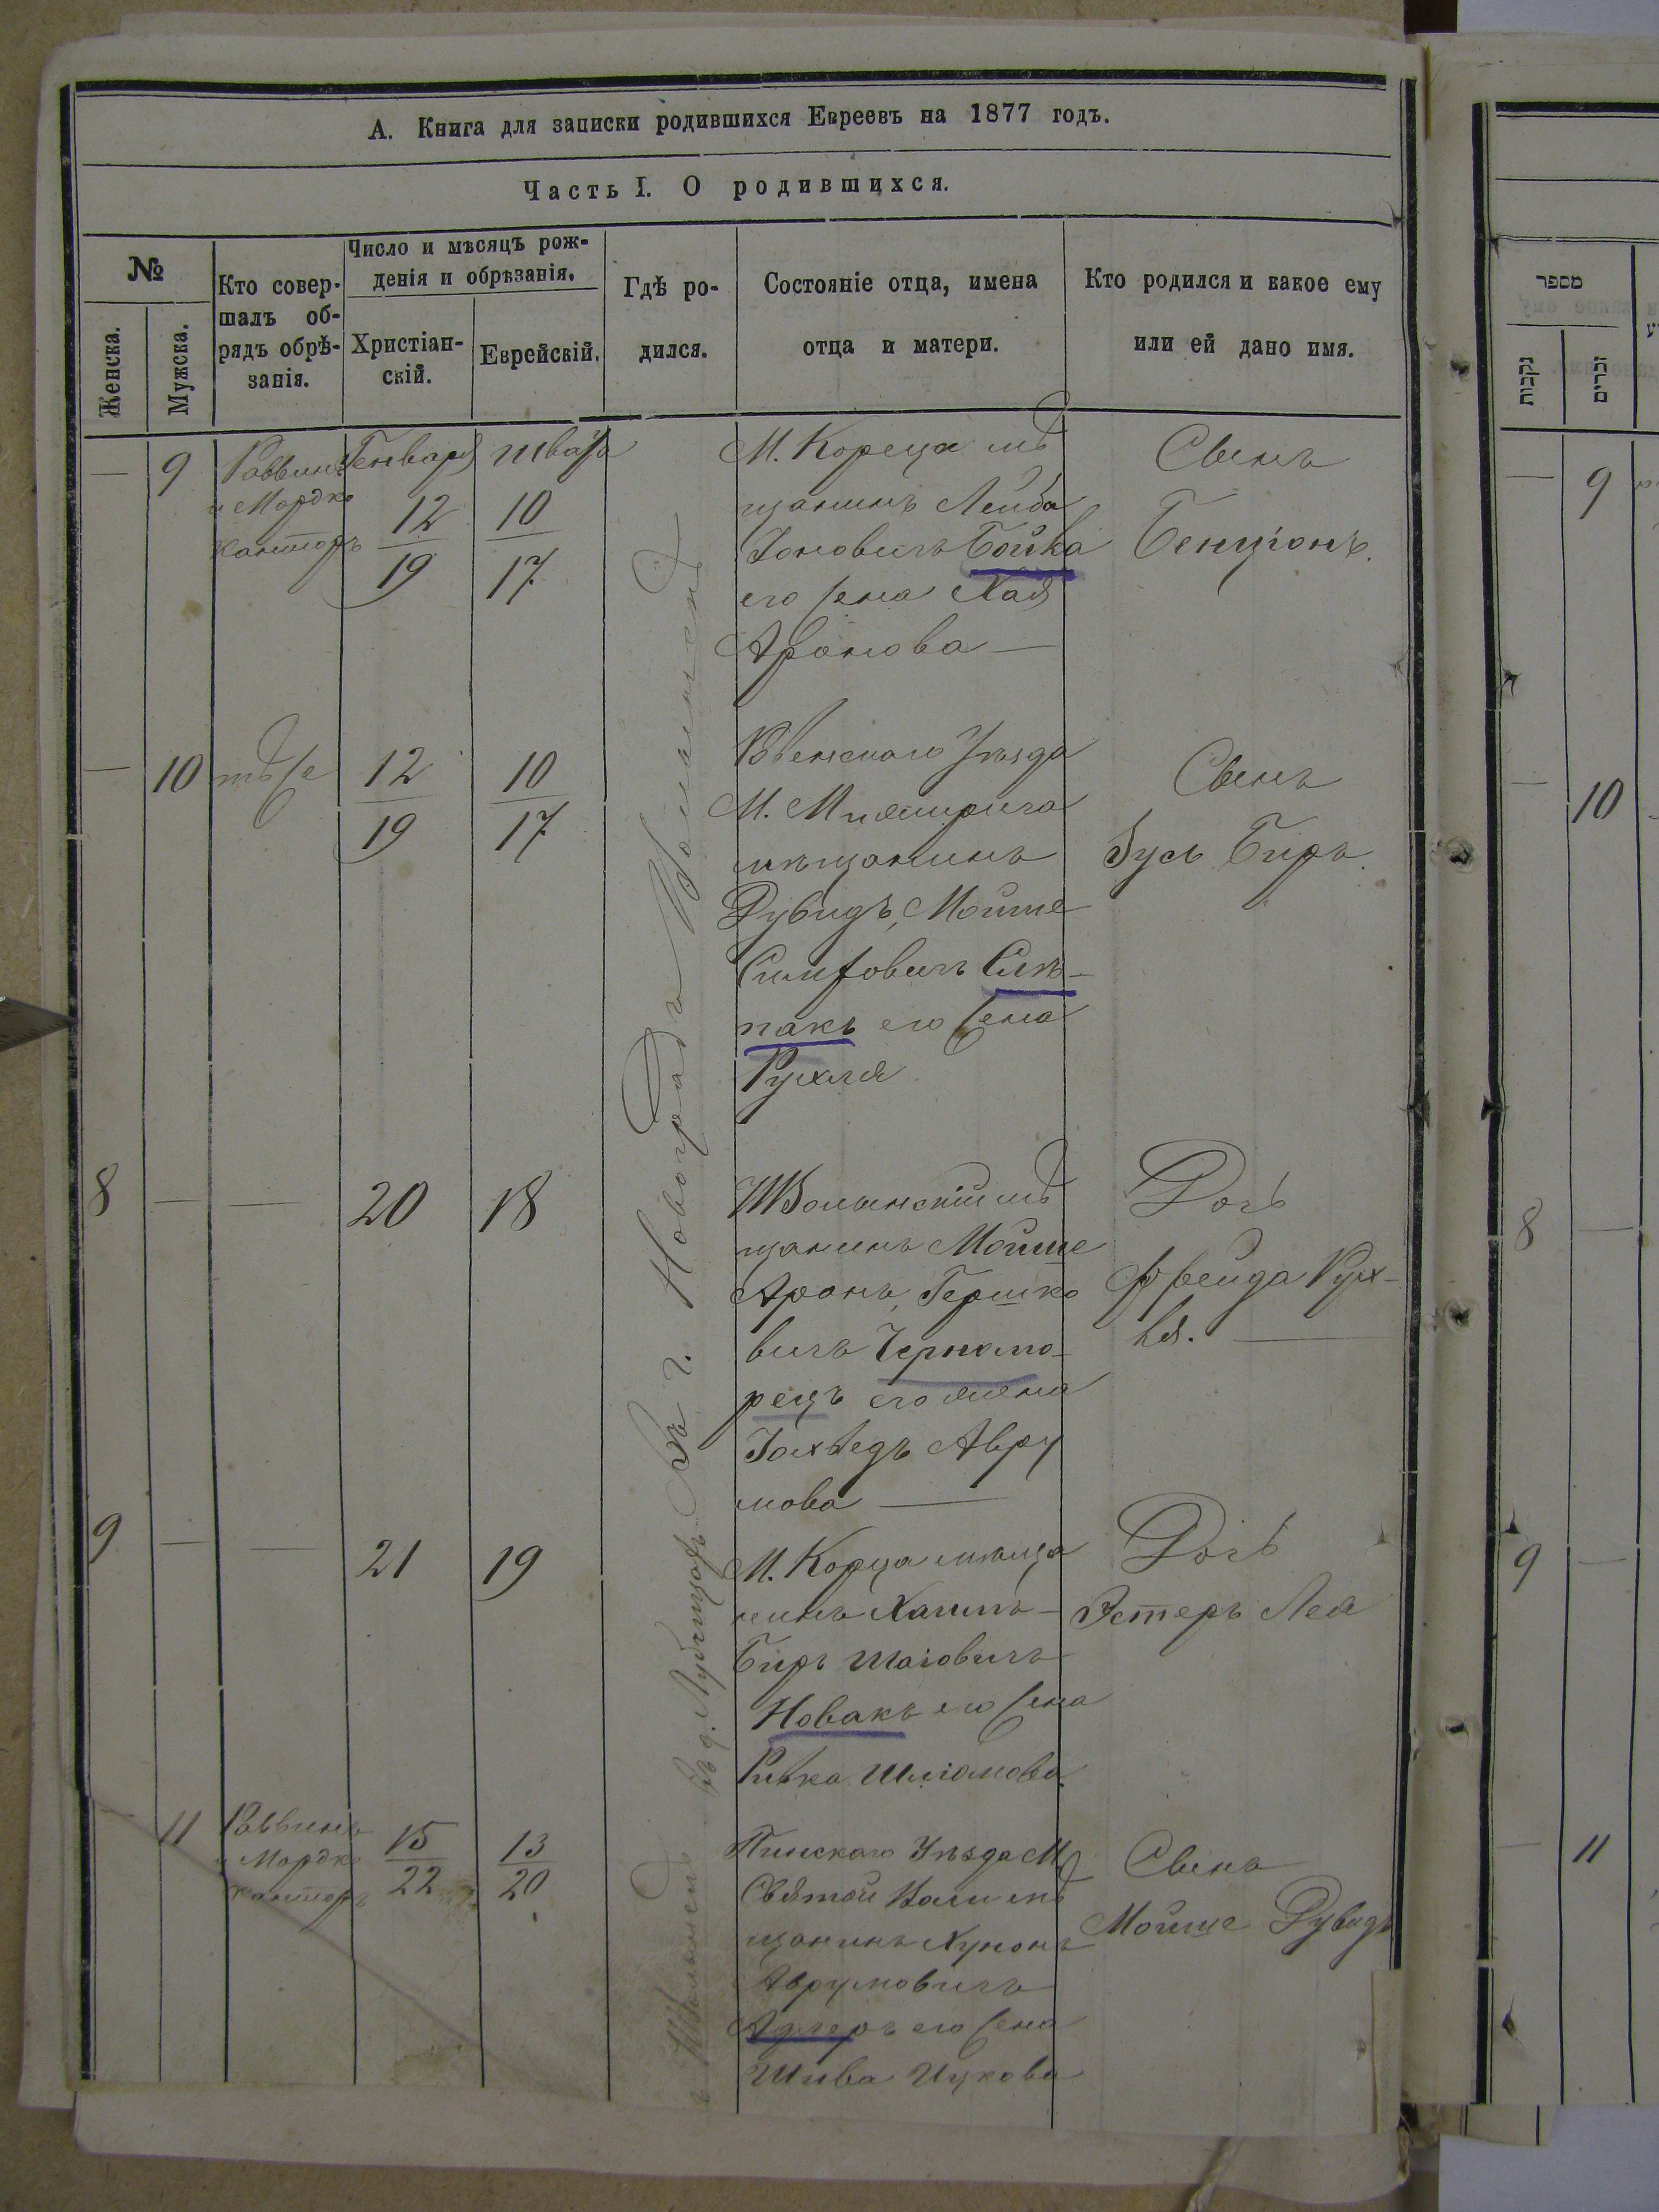 А. Книга для записки родившихся Евреевъ на 1877 годъ.
Часть I. О родившихся.
№
Женска.
Мужска.
Кто совер-
шалъ об-
рядъ обрѣ-
занія.
Число и мѣсяцъ рож-
денія и обрѣзанія.
Христіан-
скій.
Еврейскій.
Гдѣ ро-
дился.
Состояніе отца, имена
отца и матери.
Кто родился и какое ему
или ей дано имя.
—
9
Раввинъ
и Мордко
Канторъ
Генваря
12
19
Швата
10
17
М. Кореца мѣ
щанинъ Лейба
Іоновичъ Бойка
его жена Хая
Аронова —
Сынъ
Бенціонъ.
—
10
тѣ же
12
19
10
17
Ровенскаго Уѣзда
М.
мѣщанинъ
Дувидъ, Мойше
его жена
Рухля
Сынъ
Зусь Биръ.
8
—
—
20
18
НВолынскій мѣ
щанинъ Мойше
Аронъ, Гершко
вичъ Черномо-
рецъ его жена
Іохведъ Авру
мова —
Дочь
Фрейда Рух-
ля. —
9
—
—
21
19
М. Корца мѣща
нинъ Хаимъ-
Биръ Шаіовичъ
Новакъ его жена
Ривка Шліомова
Дочь
Эстеръ Лея
11
Раввинъ
и Мордко
Канторъ
15
22
13
20
Пинскаго Уѣзда М.
Святой Воли мѣ
щанинъ Хунонъ
Аврумовичъ
Адлеръ его жена
Шива Ицкова
Сынъ
Мойше Дувидъ
Въ г. Новоградъ Волынскѣ
מספר
נקבות
זכרים
—
9
—
10
8
—
9
—
11